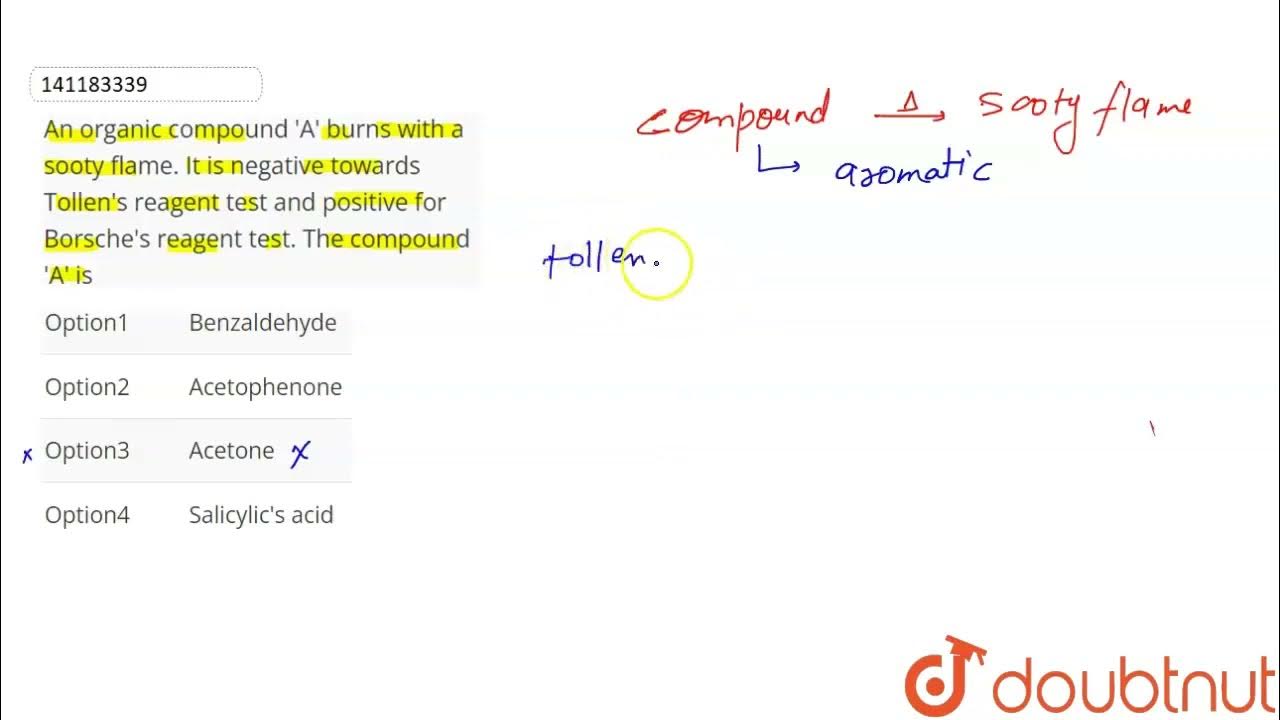 141183339
An organic compound 'A' burns with a
sooty flame. It is negative towards
Tollen's reagent test and positive for
Borsche's reagent test. The compound
'A' is
Option1 Benzaldehyde
Option2 Acetophenone
x Option3 Acetone x
Option4 Salicylic's acid
compound Δ→ sooty flame
↳ aromatic
tollen.
doubtnut